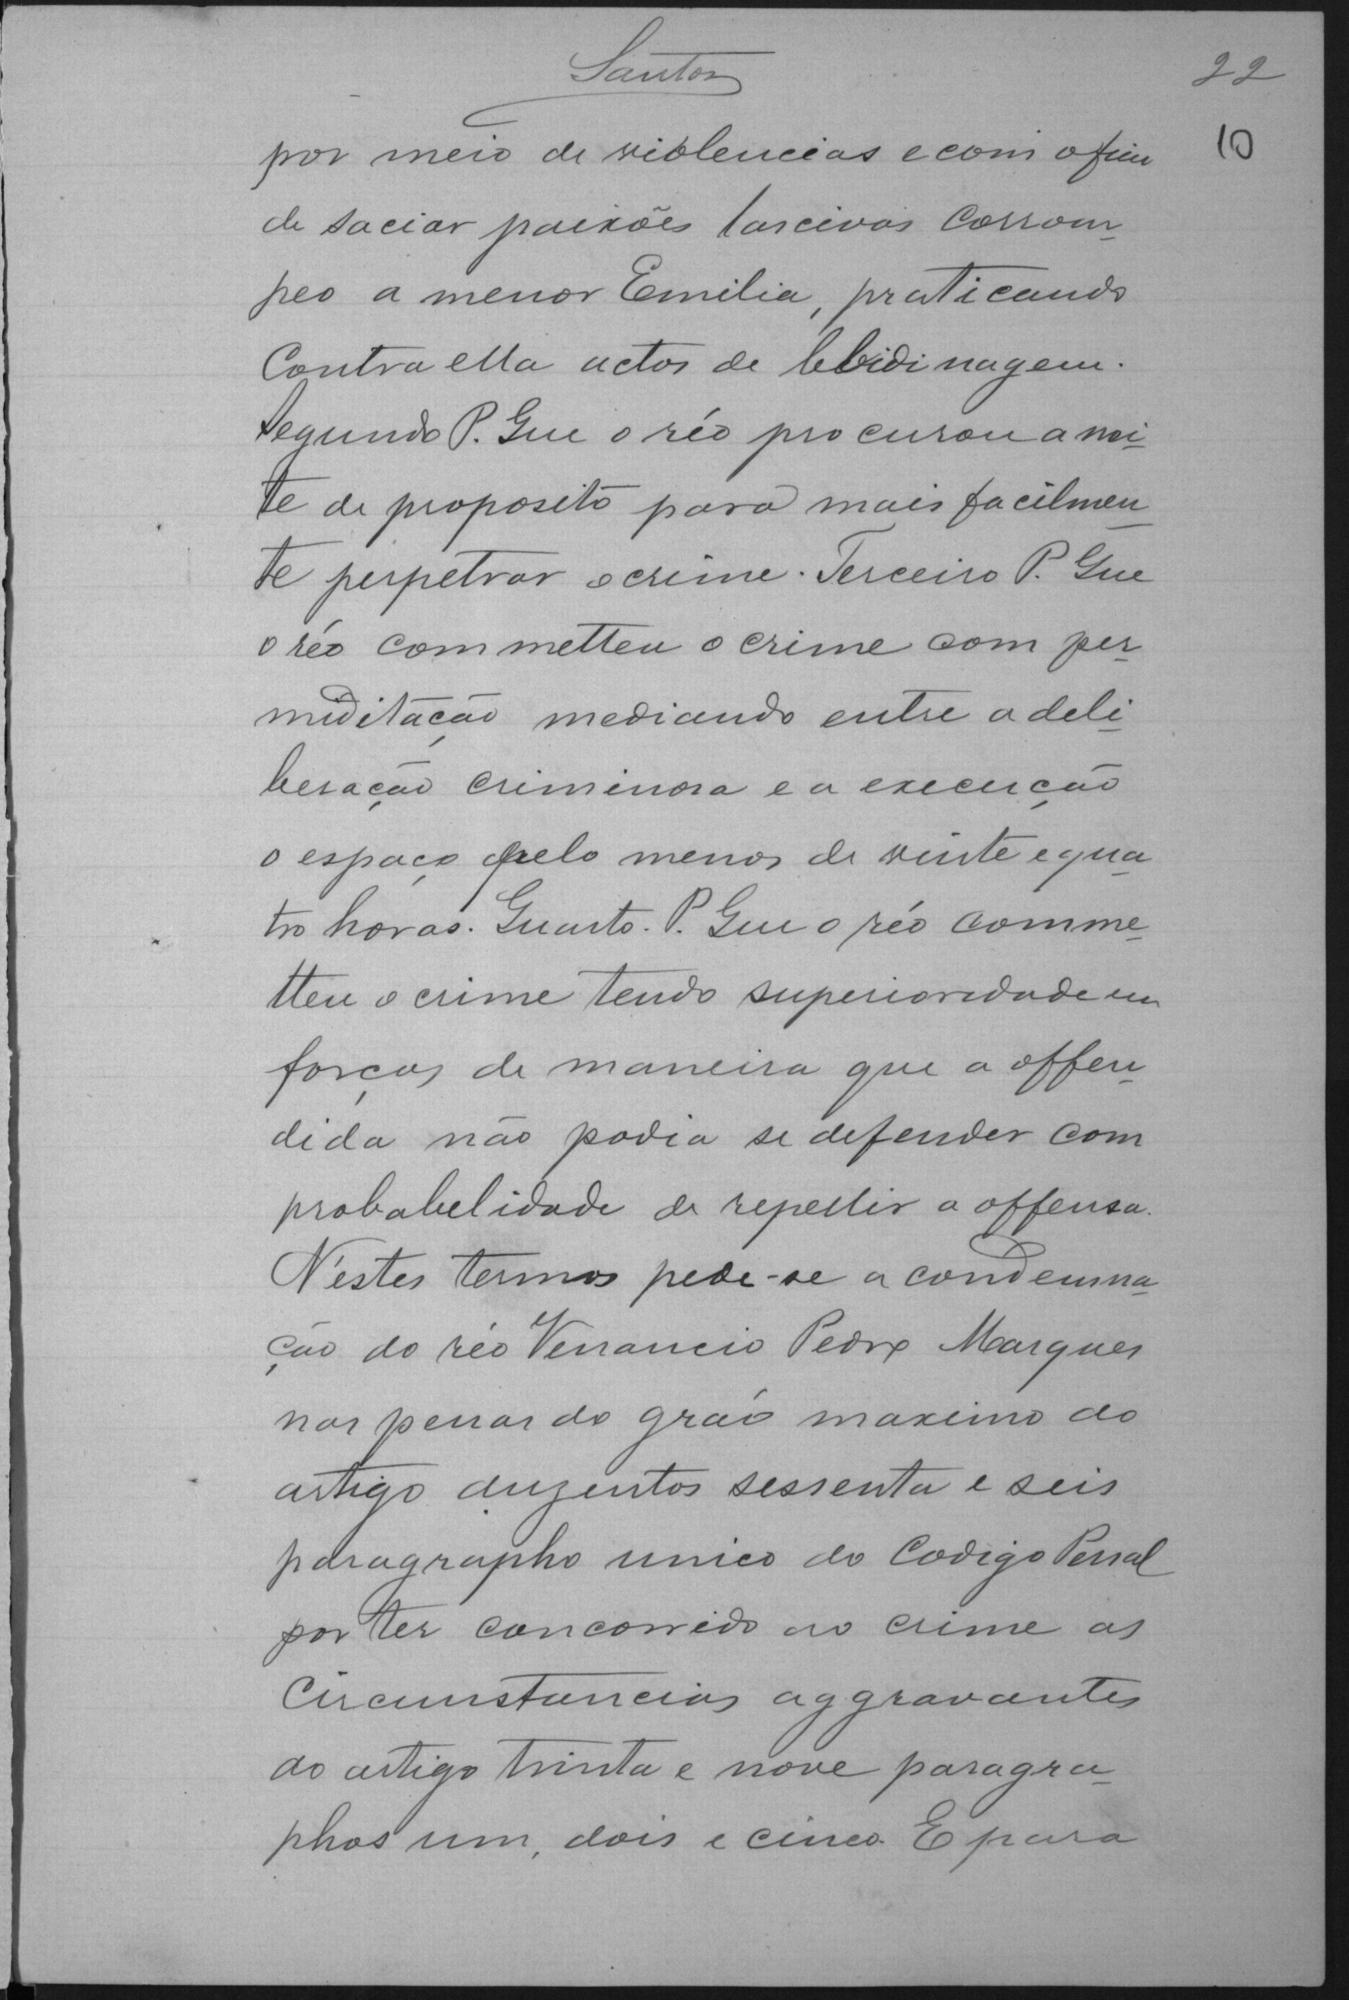 Santos
22
10
por meio de violencias e com o fim
de saciar paixões lascivas corrom-
peo a menor Emilia, praticando
contra ella actos de lebidinagem.
Segundo P. Que o réo procurou a noi-
te de proposito para mais facilmen-
te perpetrar o crime. Terceiro P. Que
o réo commetteu o crime com per-
miditação mediando entre a deli-
beração criminosa e a execução
o espaço pelo menos de vinte e qua-
tro horas. Quarto. P. Que o réo comme-
tteu o crime tendo superioridade em
forças de maneira que a offen-
dida não podia se defender com
probabelidade de repellir a offensa.
N'estes termos pede-se a condemna-
ção do réo Venancio Pedro Marques
nas penas do gráo maximo do
artigo duzentos sessenta e seis
paragrapho unico do Codigo Penal
por ter concorrido ao crime as
circumstancias aggravantes
do artigo trinta e nove paragra-
phos um, dois e cinco. E para